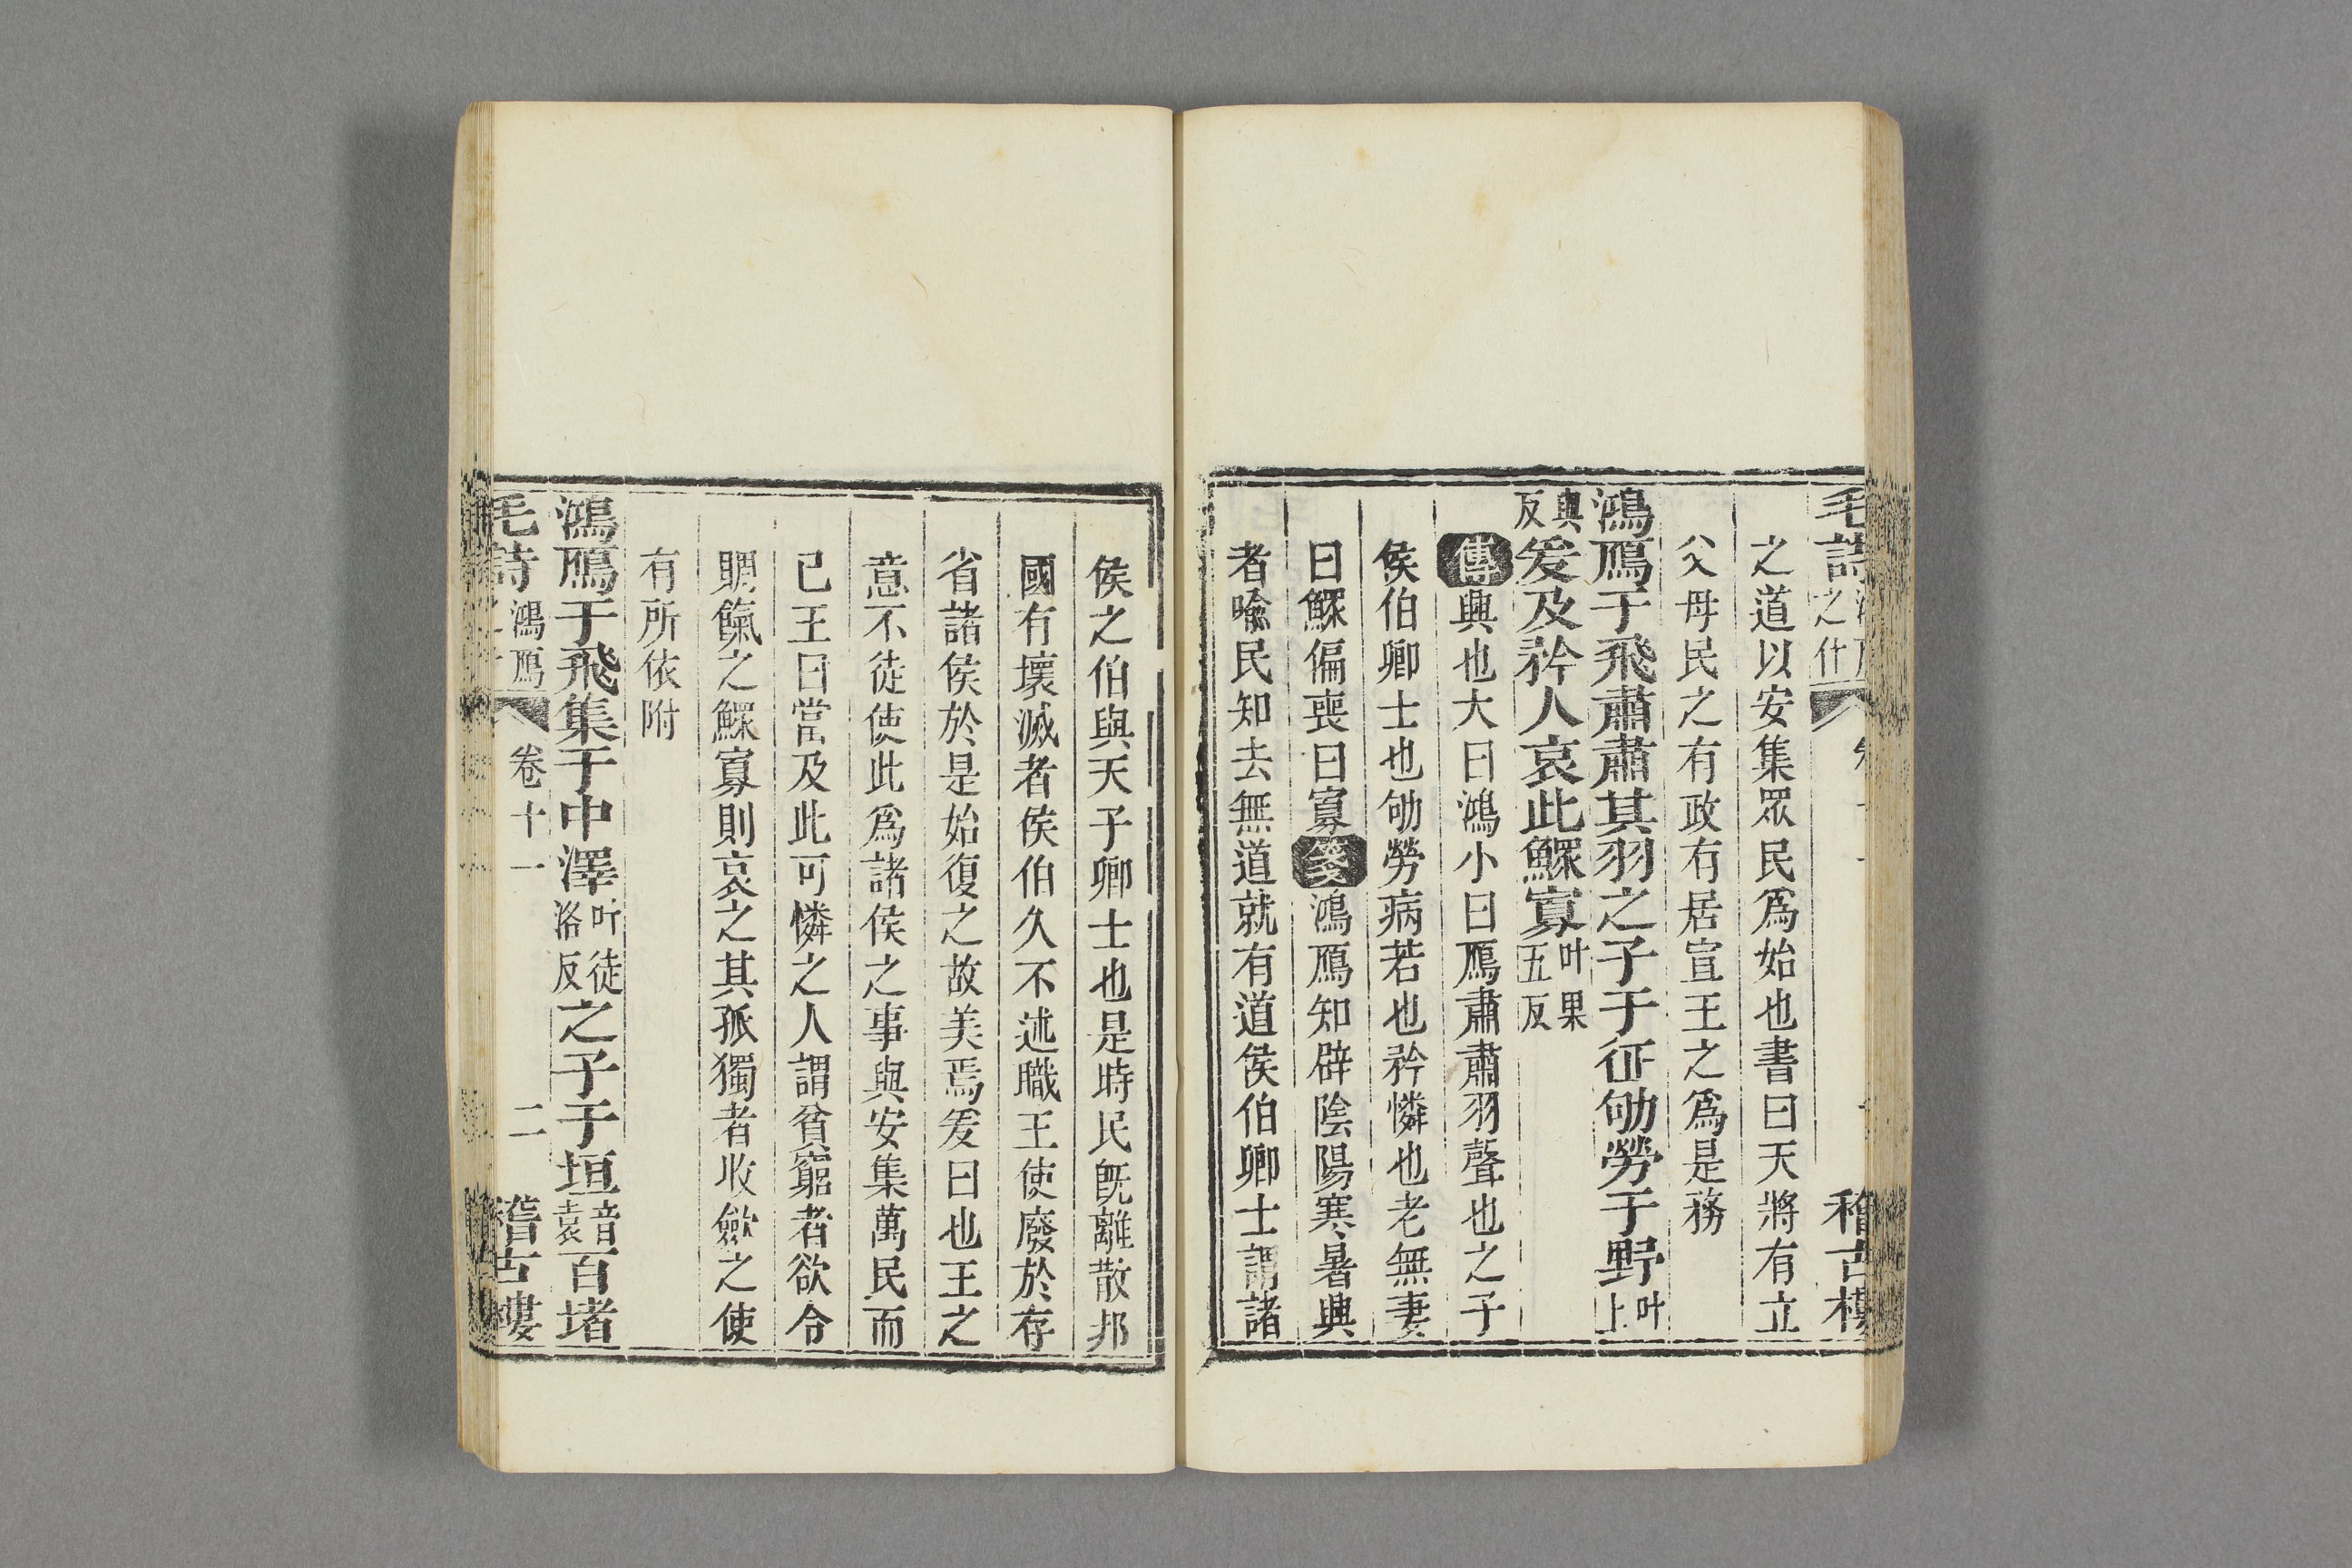 毛詩 之什
稽古樓
之道以安集眾民爲始也書曰天將有立
父母民之有政有居宣王之爲是務
鴻鴈于飛肅肅其羽之子于征劬勞于野叶上
與反爰及矜人哀此鰥寡叶果五反
傳興也大曰鴻小曰鴈肅肅羽聲也之子
侯伯卿士也劬勞病苦也矜憐也老無妻
曰鰥偏喪曰寡箋鴻鴈知辟陰陽寒暑興
者喻民知去無道就有道侯伯卿士謂諸
侯之伯與天子卿士也是時民既離散邦
國有壞滅者侯伯久不述職王使廢於存
省諸侯於是始復之故美焉爰曰也王之
意不徒使此爲諸侯之事與安集萬民而
已王曰當及此可憐之人謂貧窮者欲令
賙餼之鰥寡則哀之其孤獨者收斂之使
有所依附
鴻鴈于飛集于中澤叶徒洛反之子于垣音袁百堵
毛詩 鴻鴈 卷十一 二 稽古樓